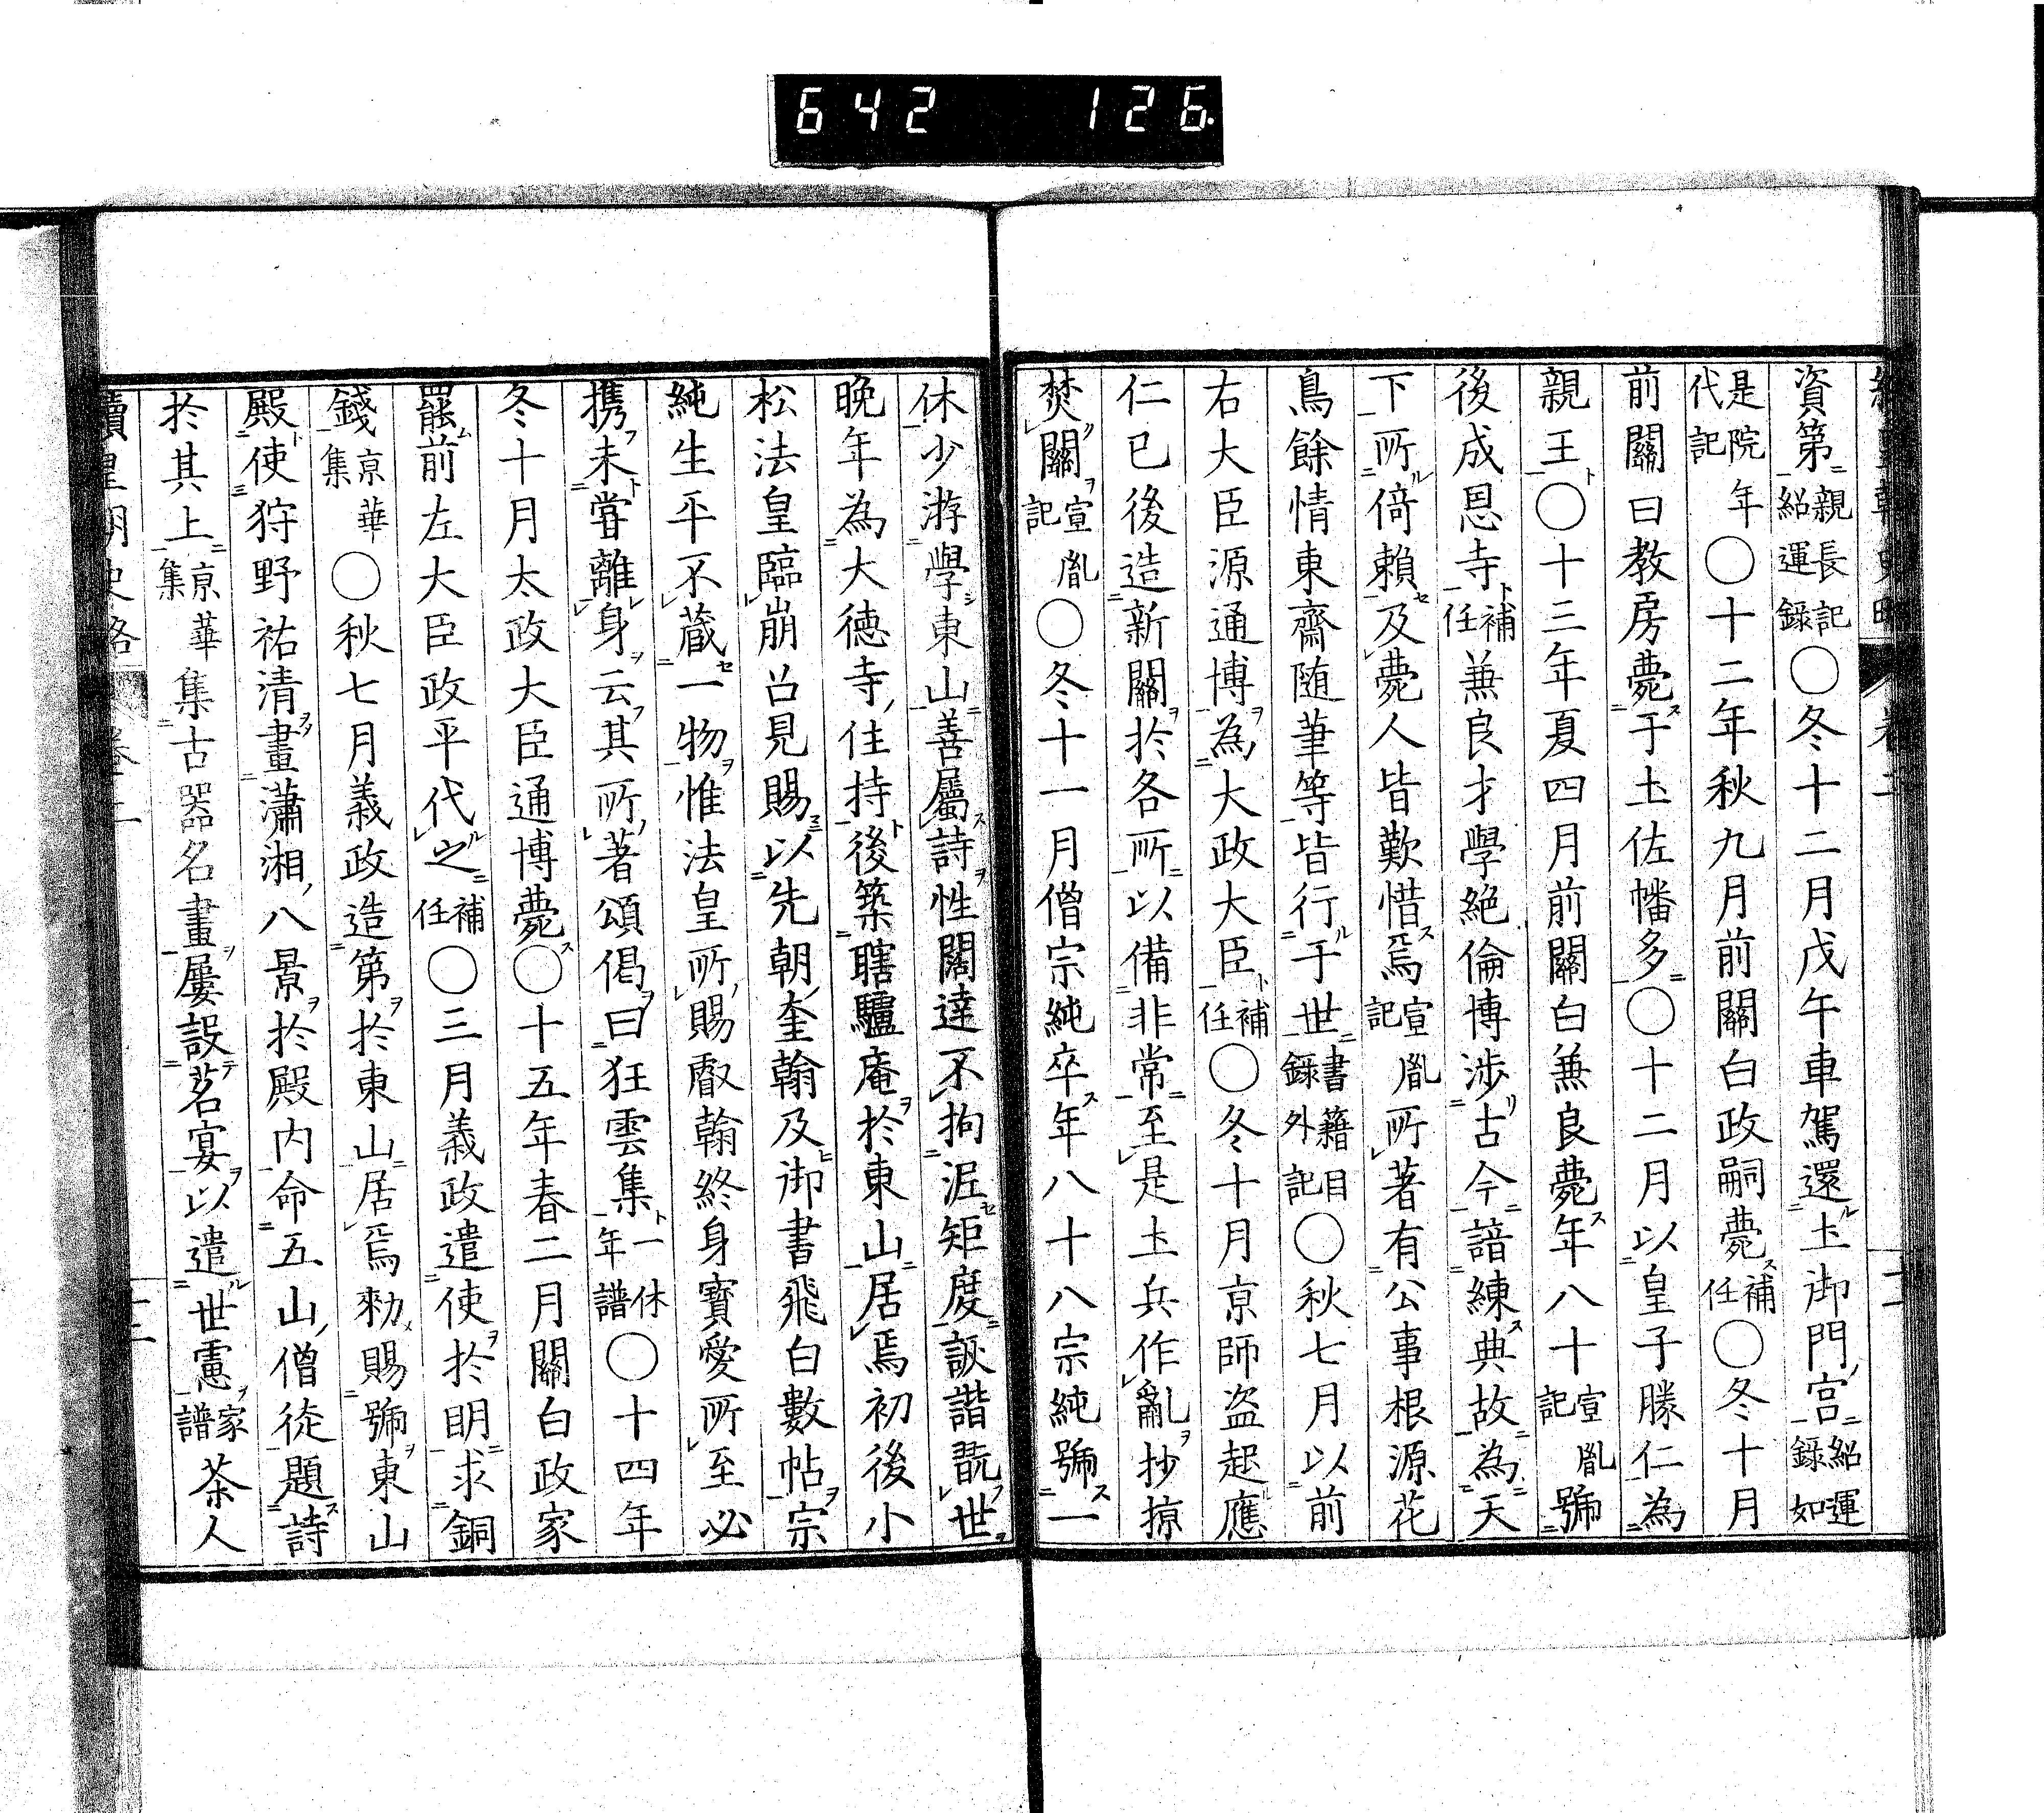 642 126.
資第親長記紹運錄○冬十二月戊午車駕還土御門宮紹運錄如
是院年代記○十二年秋九月前關白政嗣薨補任○冬十月
前關白教房薨于土佐幡多○十二月以皇子勝仁為
親王○十三年夏四月前關白兼良薨年八十宣胤記號
後成恩寺補任兼良才學絕倫博涉古今諳練典故為天
下所倚賴及薨人皆歎惜焉宣胤記所著有公事根源花
鳥餘情東齋随筆等皆行于世書籍目錄外記○秋七月以前
右大臣源通博為大政大臣補任○冬十月京師盜起應
仁已後造新關於各所以備非常至是土兵作亂抄掠
焚關宣胤記○冬十一月僧宗純卒年八十八宗純號一
休少游學東山善屬詩性闊達不拘泥矩度詼諧翫世
晚年為大德寺住持後築瞎驢庵於東山居焉初後小
松法皇臨崩召見賜以先朝奎翰及御書飛白數帖宗
純生平不藏一物惟法皇所賜叡翰終身寶愛所至必
携未甞離身云其所著頌偈曰狂雲集一休年譜○十四年
冬十月太政大臣通博薨○十五年春二月關白政家
罷前左大臣政平代之補任○三月義政遣使於明求銅
錢京華集○秋七月義政造第於東山居焉勅賜號東山
殿使狩野祐清畫瀟湘八景於殿内命五山僧徒題詩
於其上京華集集古器名畫屢設茗宴以遣世慮家譜茶人